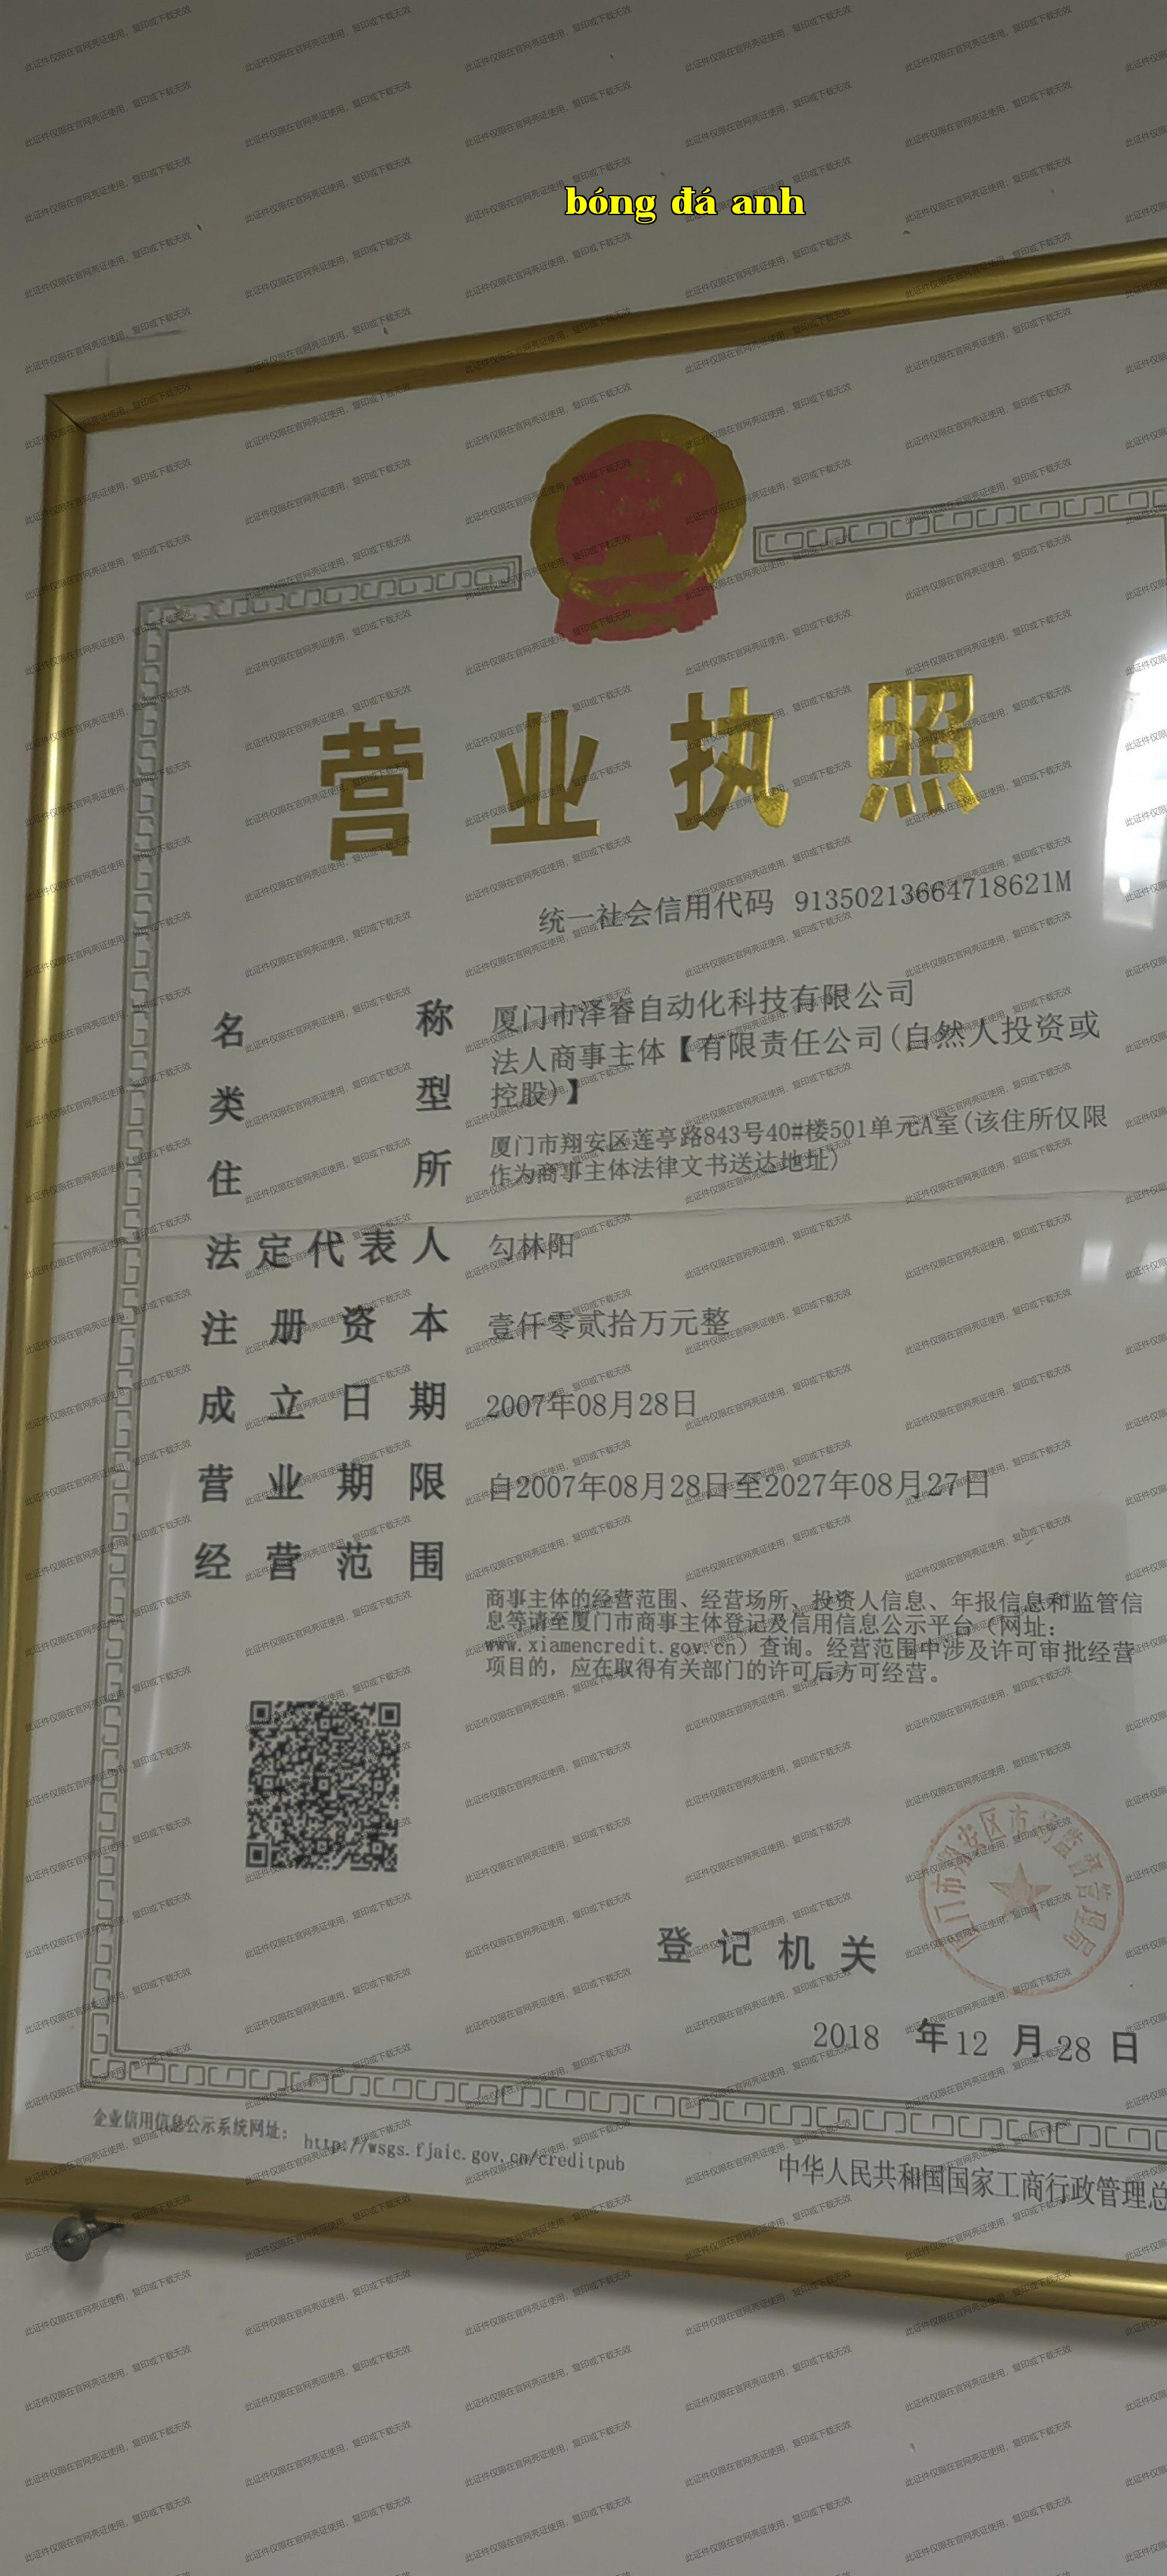 bóng đá anh
营业执照
统一社会信用代码 91350213664718621M
名称 厦门市泽睿自动化科技有限公司
类型 法人商事主体【有限责任公司(自然人投资或
控股)】
住所 厦门市翔安区莲亭路843号40#楼501单元A室(该住所仅限
作为商事主体法律文书送达地址)
法定代表人 勾林阳
注册资本 壹仟零贰拾万元整
成立日期 2007年08月28日
营业期限 自2007年08月28日至2027年08月27日
经营范围
商事主体的经营范围、经营场所、投资人信息、年报信息和监管信
息等请至厦门市商事主体登记及信用信息公示平台（网址：
www.xiamencredit.gov.cn）查询。经营范围中涉及许可审批经营
项目的，应在取得有关部门的许可后方可经营。
厦门市翔安区市场监督管理局
登记机关
2018 年 12 月 28 日
企业信用信息公示系统网址： http://wsgs.fjaic.gov.cn/creditpub
中华人民共和国国家工商行政管理总
此证件仅限在官网亮证使用，复印或下载无效